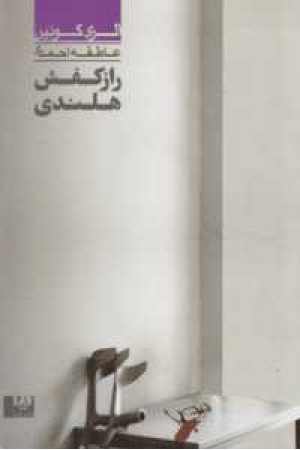 الری کوئین
عاطفه احمدی
راز کفش
هلندی